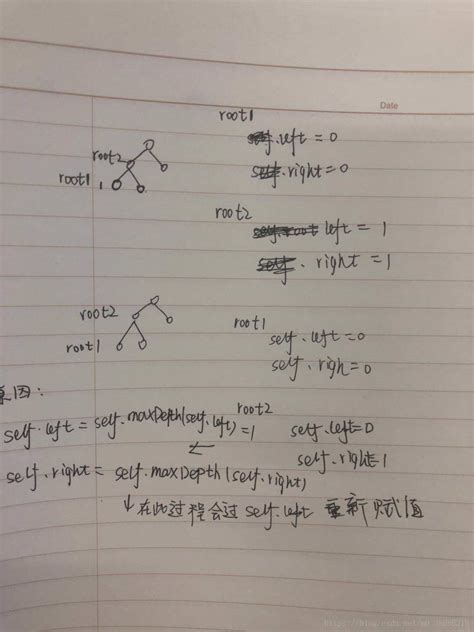 Date
root1
self.left = 0
self.right = 0
root2
root1
root2
self.root left = 1
self. right = 1
root2
root1
root1
self.left = 0
self.righ = 0
原因:
self.left = self.maxDepth(self.left) = 1
root2
self.left = 0
self.right = 1
self.right = self.maxDepth(self.right)
↓在此过程会过 self.left 重新赋值